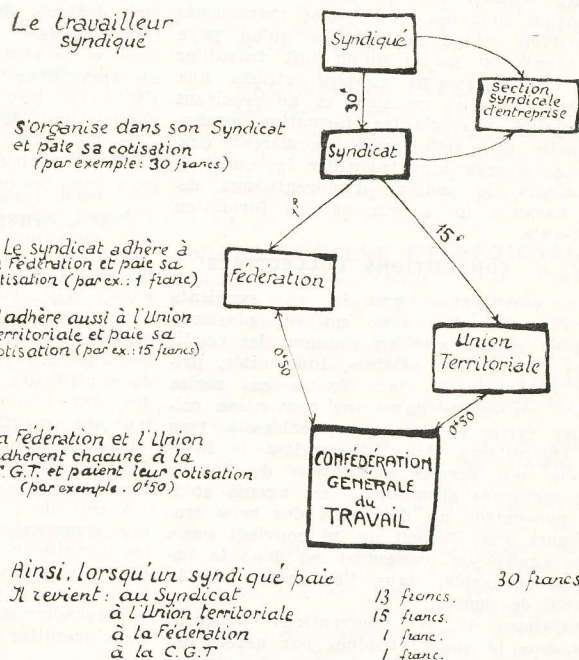 Le travailleur
syndiqué
S'organise dans son Syndicat
et paie sa cotisation
(par exemple: 30 francs)
Le syndicat adhère à
Fédération et paie sa
(par ex.: 1 franc)
adhère aussi à l'Union
et paie sa
(par ex.: 15 francs)
Fédération et l'Union
chacune à la
C.G.T et paient leur cotisation
(par exemple. 0f50)
Syndiqué
Section
Syndicale
d'entreprise
30f
Syndicat
15f
Fédération
Union
Territoriale
0f50
0f50
CONFÉDÉRATION
GÉNÉRALE
du
TRAVAIL
Ainsi, lorsqu'un syndiqué paie 30 francs
Il revient: au Syndicat 13 francs.
à l'Union territoriale 15 francs.
à la Fédération 1 franc.
à la C.G.T 1 franc.